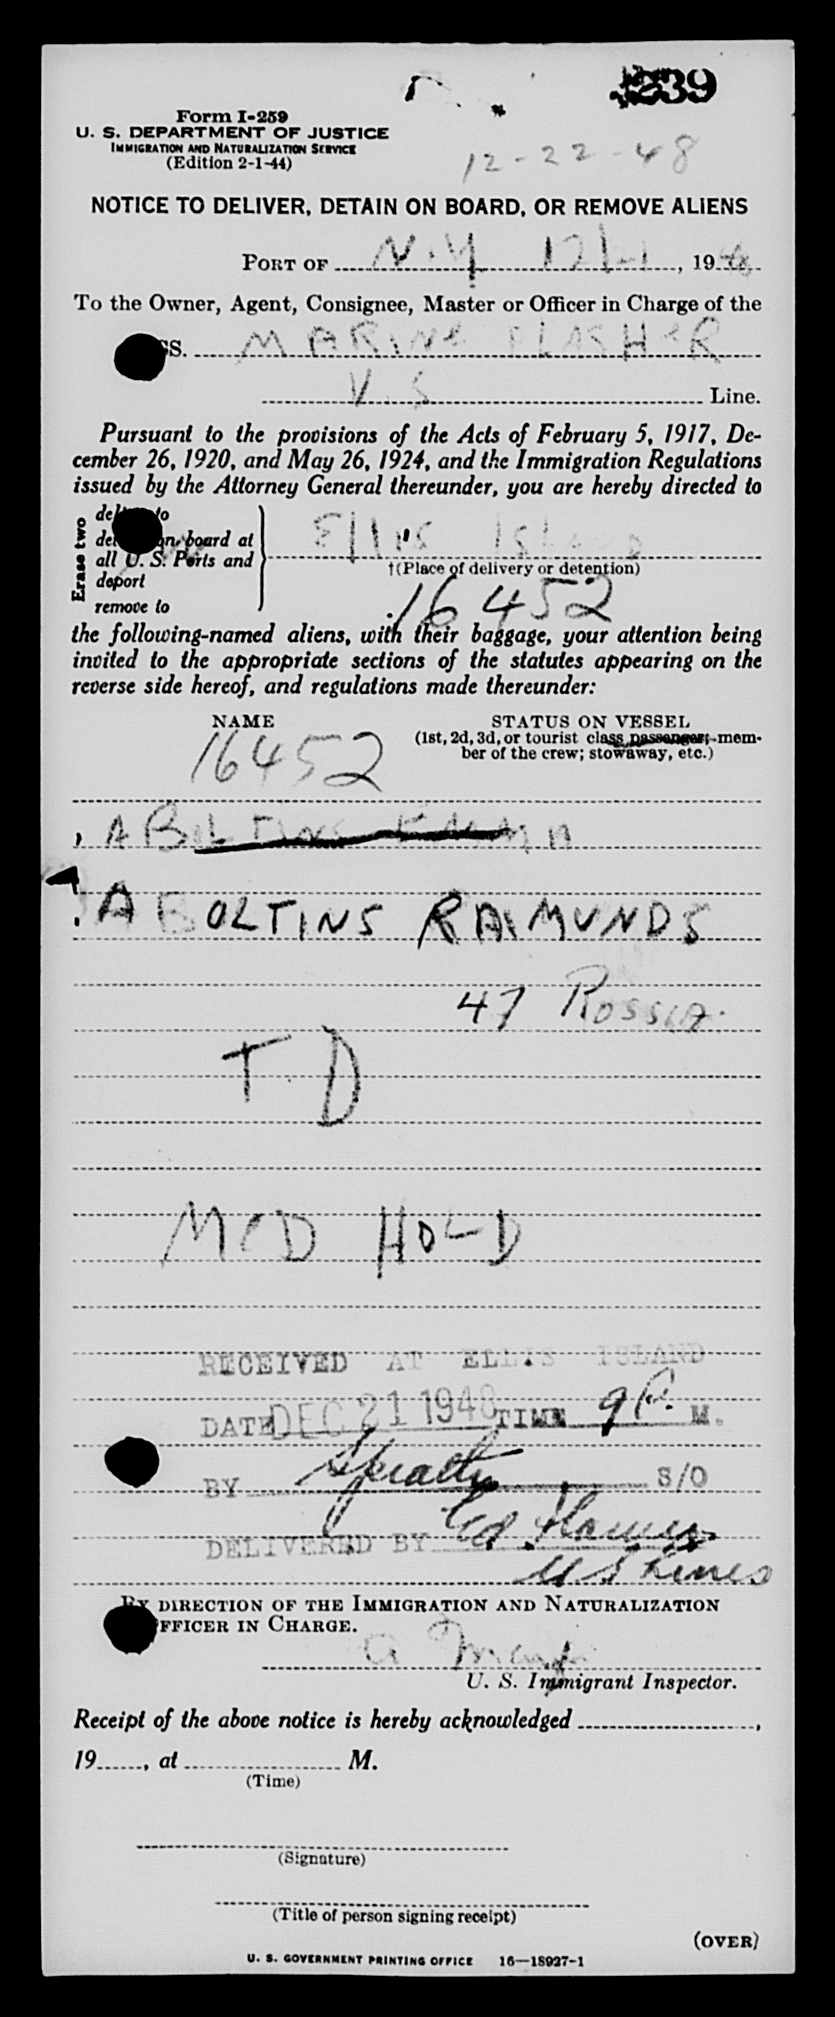 239
Form I-259
U. S. DEPARTMENT OF JUSTICE
IMMIGRATION AND NATURALIZATION SERVICE
(Edition 2-1-44)
12-22-48
NOTICE TO DELIVER, DETAIN ON BOARD, OR REMOVE ALIENS
PORT OF N.Y 12/21, 1948
To the Owner, Agent, Consignee, Master or Officer in Charge of the
SS. MARINE FLASHER
U.S Line.
Pursuant to the provisions of the Acts of February 5, 1917, De-
cember 26, 1920, and May 26, 1924, and the Immigration Regulations
issued by the Attorney General thereunder, you are hereby directed to
Erase two
deliver to
detain on board at
all U. S. Ports and
deport
remove to
Ellis Island
†(Place of delivery or detention)
16452
the following-named aliens, with their baggage, your attention being
invited to the appropriate sections of the statutes appearing on the
reverse side hereof, and regulations made thereunder:
NAME STATUS ON VESSEL
(1st, 2d, 3d, or tourist class passenger; mem-
ber of the crew; stowaway, etc.)
16452
ABOLTINS
ABOLTINS RAIMUNDS
47 ROSSIA
T D
MED HOLD
RECEIVED AT ELLIS ISLAND
DATE DEC 21 1948 TIME 9 P. M.
BY S/O
DELIVERED BY Ed.
U S Lines
BY DIRECTION OF THE IMMIGRATION AND NATURALIZATION
OFFICER IN CHARGE.
U. S. Immigrant Inspector.
Receipt of the above notice is hereby acknowledged ,
19 , at M.
(Time)
(Signature)
(Title of person signing receipt)
(OVER)
U. S. GOVERNMENT PRINTING OFFICE 16—18927-1